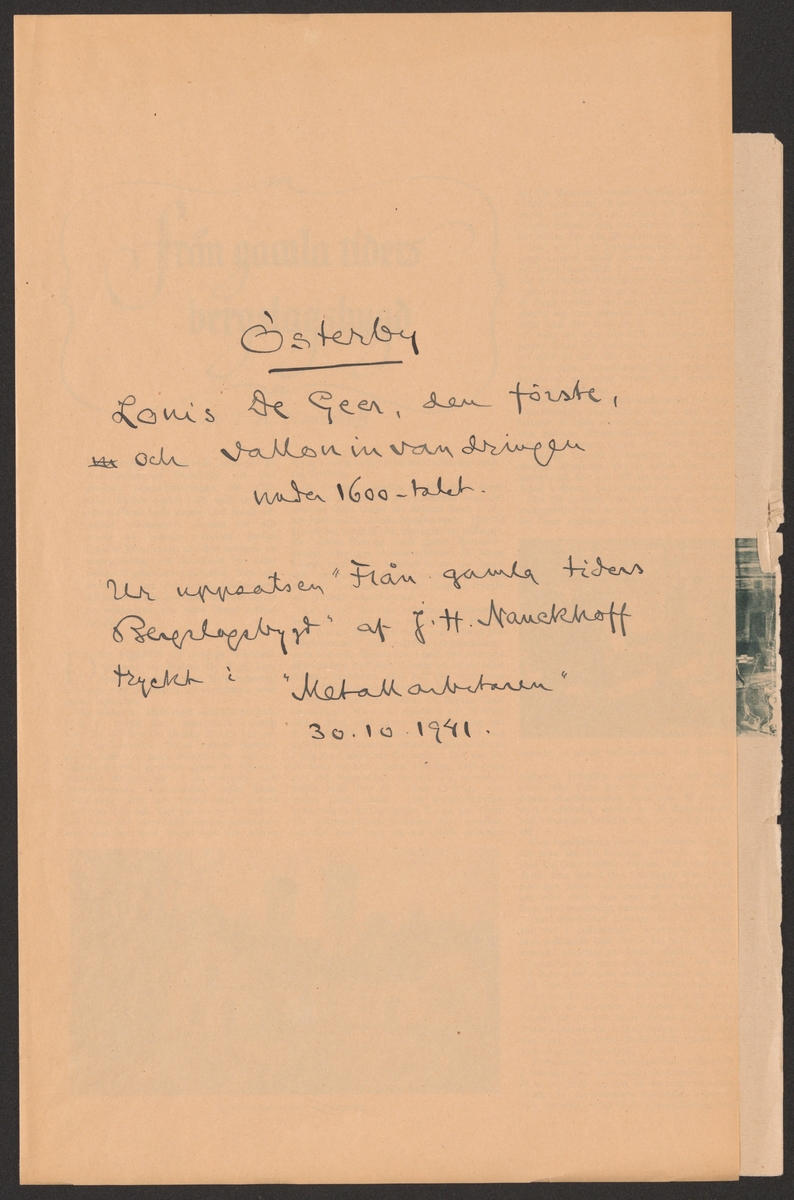 Österby
Louis De Geer, den förste,
och valloninvandringen
under 1600-talet.
Ur uppsatsen "Från gamla tiders
Bergslagsbygd" af J. H. Nauckhoff
tryckt i "Metallarbetaren"
30.10.1941.